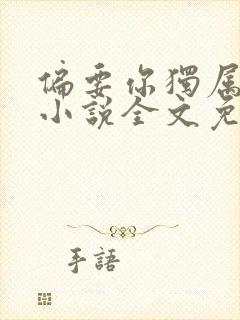 偏要你獨属
小説全文免
手語